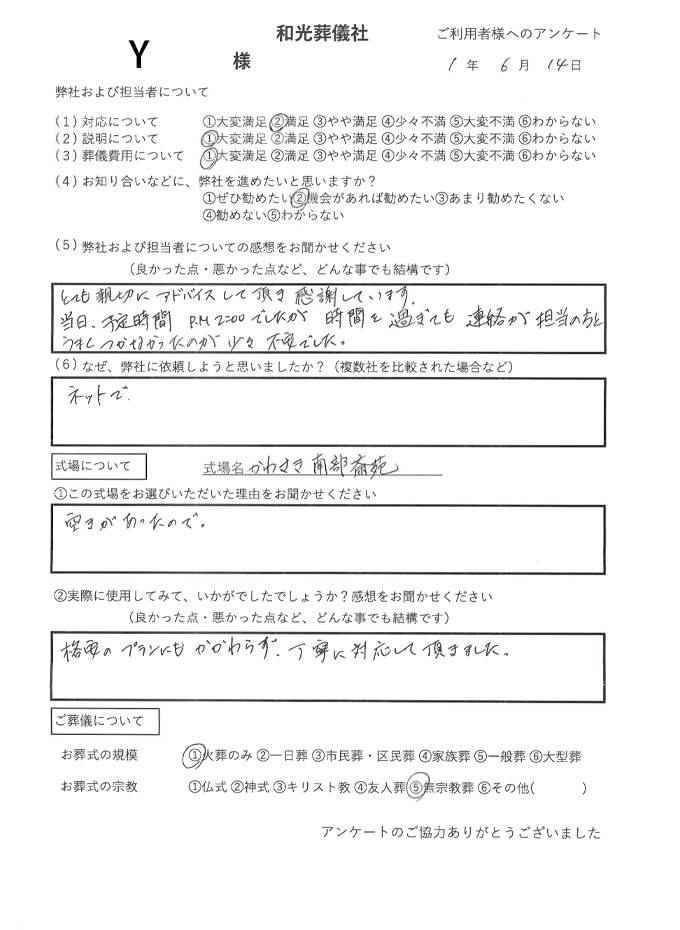 和光葬儀社
ご利用者様へのアンケート
Y 様
1年 6月 14日
弊社および担当者について
(1)対応について ①大変満足 ②満足 ③やや満足 ④少々不満 ⑤大変不満 ⑥わからない
(2)説明について ①大変満足 ②満足 ③やや満足 ④少々不満 ⑤大変不満 ⑥わからない
(3)葬儀費用について ①大変満足 ②満足 ③やや満足 ④少々不満 ⑤大変不満 ⑥わからない
(4)お知り合いなどに、弊社を進めたいと思いますか?
①ぜひ勧めたい②機会があれば勧めたい③あまり勧めたくない
④勧めない⑤わからない
(5)弊社および担当者についての感想をお聞かせください
(良かった点・悪かった点など、どんな事でも結構です)
とても親切にアドバイスして頂き感謝しています。
当日、予定時間 P.M 2:00でしたが 時間を過ぎても 連絡が担当の方と
うまくつかなかったのが少々不安でした。
(6)なぜ、弊社に依頼しようと思いましたか?(複数社を比較された場合など)
ネットで.
式場について 式場名 かわさき南部斎苑
①この式場をお選びいただいた理由をお聞かせください
空きがあったので。
②実際に使用してみて、いかがでしたでしょうか?感想をお聞かせください
(良かった点・悪かった点など、どんな事でも結構です)
格安のプランにもかかわらず、丁寧に対応して頂きました。
ご葬儀について
お葬式の規模 ①火葬のみ ②一日葬 ③市民葬・区民葬 ④家族葬 ⑤一般葬 ⑥大型葬
お葬式の宗教 ①仏式 ②神式 ③キリスト教 ④友人葬 ⑤無宗教葬 ⑥その他( )
アンケートのご協力ありがとうございました